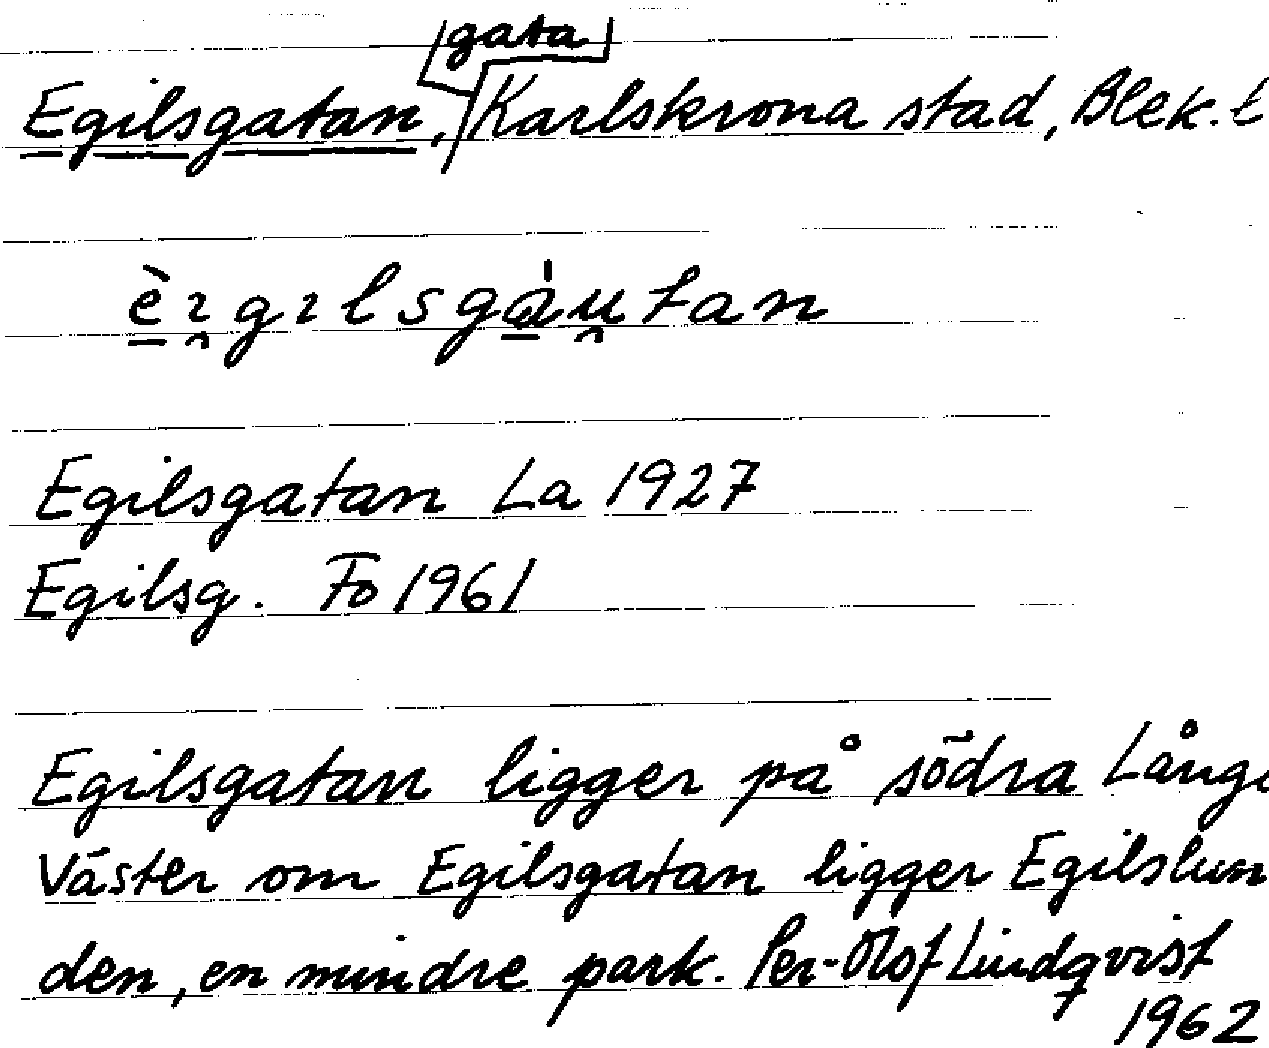 gata
Egilsgatan, Karlskrona stad, Blek. l
èı̯gılsgàu̯tan
Egilsgatan La 1927
Egilsg. Fo 1961
Egilsgatan ligger på södra Långö
Väster om Egilsgatan ligger Egilslun
den, en mindre park. Per-Olof Lindqvist
1962